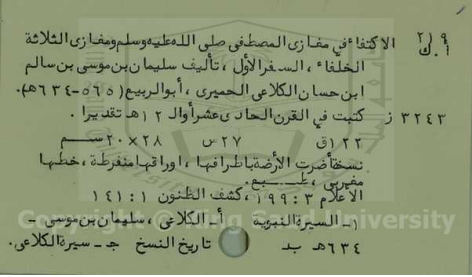 ٢١٩
أ.ك
الاكتفاء في مغازى المصطفى صلى الله عليه وسلم ومغازى الثلاثة
الخلفاء، السفر الأول، تأليف سليمان بن موسى بن سالم
ابن حسان الكلاعى الحميرى، أبو الربيع (٥٦٥-٦٣٤هـ).
٣٢٤٣ ز كتبت في القرن الحادى عشر أو الـ ١٢هـ تقديرا.
٢٢ق ٢٧س ٢٨×٢٠سم
نسخة أضرت الأرضة باطرافها، اوراقها منفرطة، خطها
مغربي، طبع.
الاعلام ٣: ١٩٩، كشف الظنون ١: ١٤١
١- السيرة النبوية أ- الكلاعى، سليمان بن موسى -
٦٣٤هـ ب- تاريخ النسخ ج- سيرة الكلاعى.
King Saud University